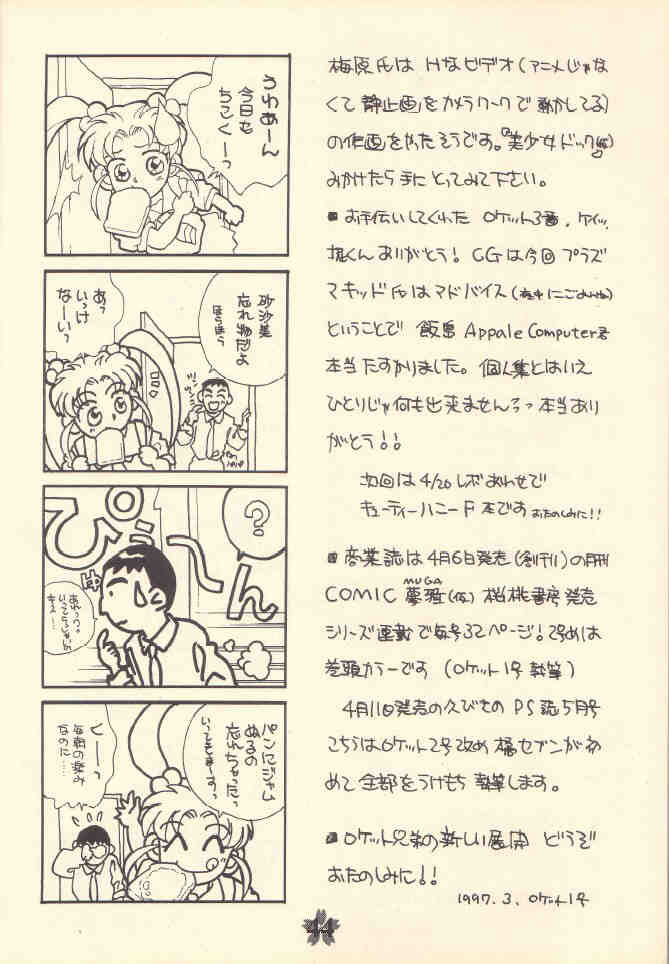 うわあーん
今日も
ちこくーっ
砂沙美
忘れ物だよ
ほらほら
あっ
いっけ
なーいっ
?
ぴゅーん
あれっ?
いってらっしゃいの
キスは…
パンにジャム
ぬるの
忘れちゃったっ
いってきまーすっ
くーっ
毎朝の楽み
なのに……
梅原氏は Hなビデオ(アニメじゃな
くて静止画をカメラワークで動かしてる)
の作画をやったそうです。『美少女ドック
みかけたら手にとってみて下さい。
■お手伝いしてくれた ロケット3番、ケイッ、
堀くんありがとう! CGは今回プラズ
マキッド氏はアドバイス
ということで 飯島 Appale Computer君
本当たすかりました。個人集とはいえ
ひとりじゃ何も出来ませんろっ本当あり
がとう!!
次回は 4/20 レボあわせで
キューティーハニーF本です おたのしみに!!
■商業誌は4月6日発売(創刊)の月刊
COMIC 夢雅(仮) 桜桃書房発売
MUGA
シリーズ連載で毎号32ページ! 2号めは
巻頭カラーです (ロケット1号執筆)
4月11日発売の久びさの PS誌5月号
こちらはロケット2号改め 橘セブンが初
めて全部をうけもち執筆します。
■ロケット兄弟の新しい展開 どうぞ
おたのしみに!!
1997.3. ロケット1号
44